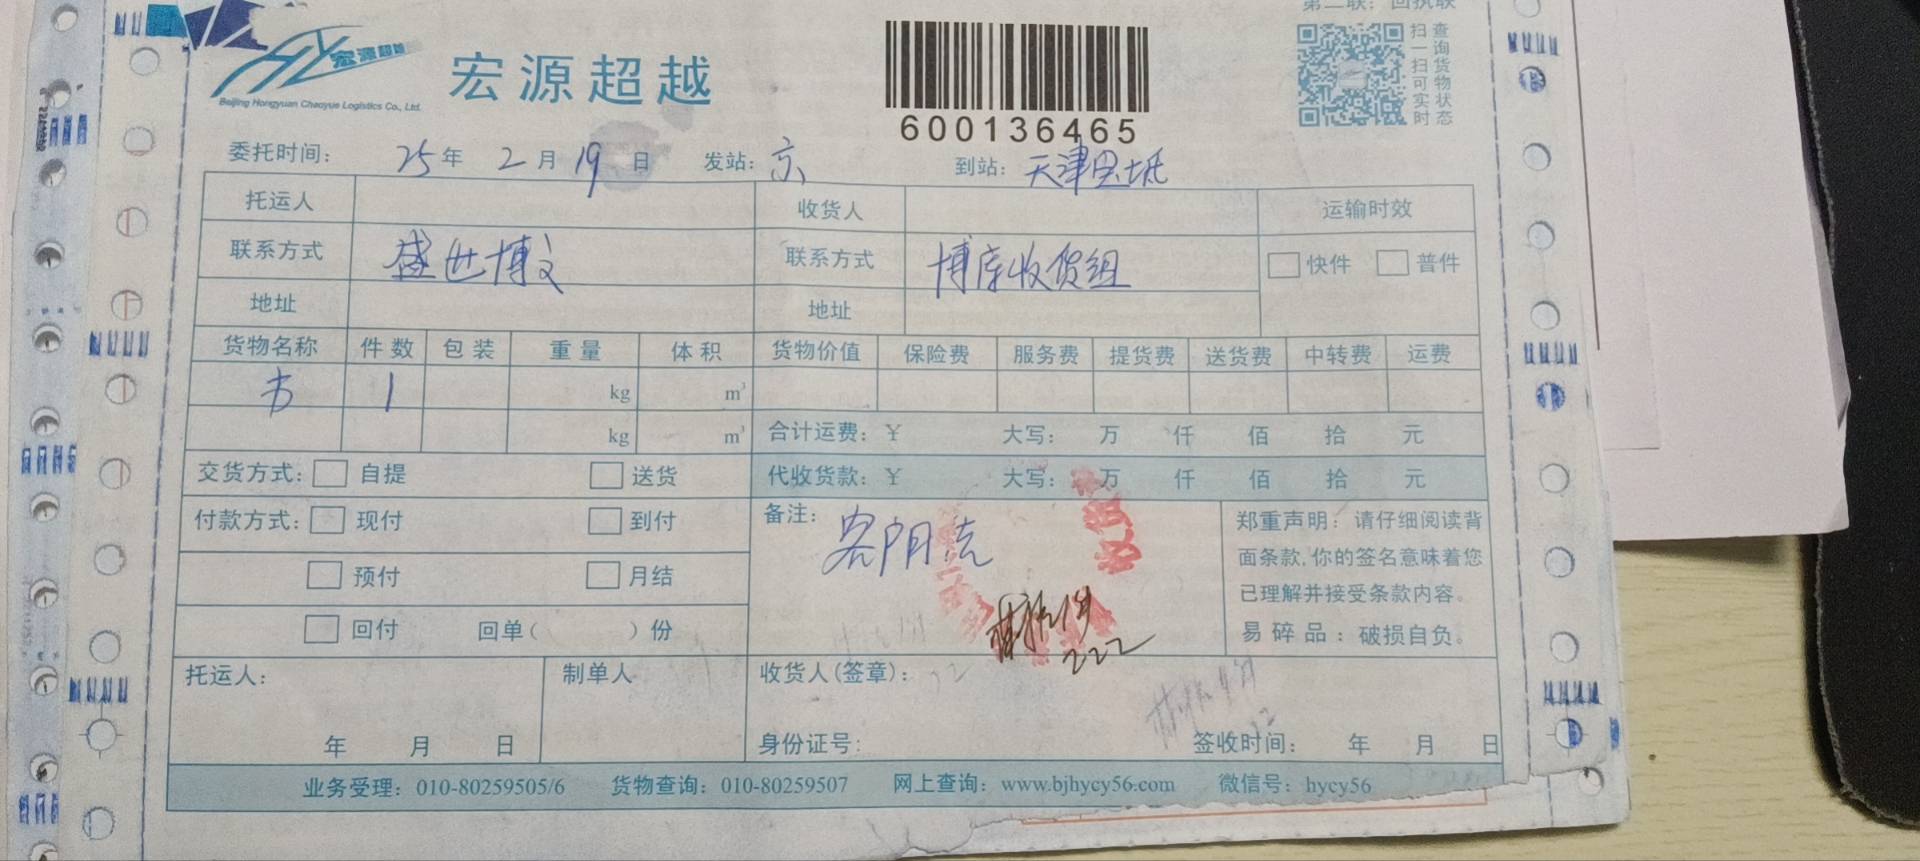 第二联：回执联
宏源超越
Beijing Hongyuan Chaoyue Logistics Co., Ltd.
宏源超越
600136465
扫一扫可实时
查询货物状态
委托时间： 25 年 2 月 19 日 发站：京 到站：天津宝坻
托运人 收货人 运输时效
联系方式 盛世博文 联系方式 博库收货组 快件 普件
地址 地址
货物名称 件数 包装 重量 体积 货物价值 保险费 服务费 提货费 送货费 中转费 运费
书 1 kg m³
kg m³ 合计运费：¥ 大写： 万 仟 佰 拾 元
交货方式： 自提 送货 代收货款：¥ 大写： 万 仟 佰 拾 元
付款方式： 现付 到付 备注：
预付 月结
回付 回单（ ）份
222
郑重声明：请仔细阅读背
面条款,你的签名意味着您
已理解并接受条款内容。
易碎品：破损自负。
托运人： 制单人 收货人(签章)：
年 月 日 身份证号： 签收时间： 年 月 日
业务受理：010-80259505/6 货物查询：010-80259507 网上查询：www.bjhycy56.com 微信号：hycy56